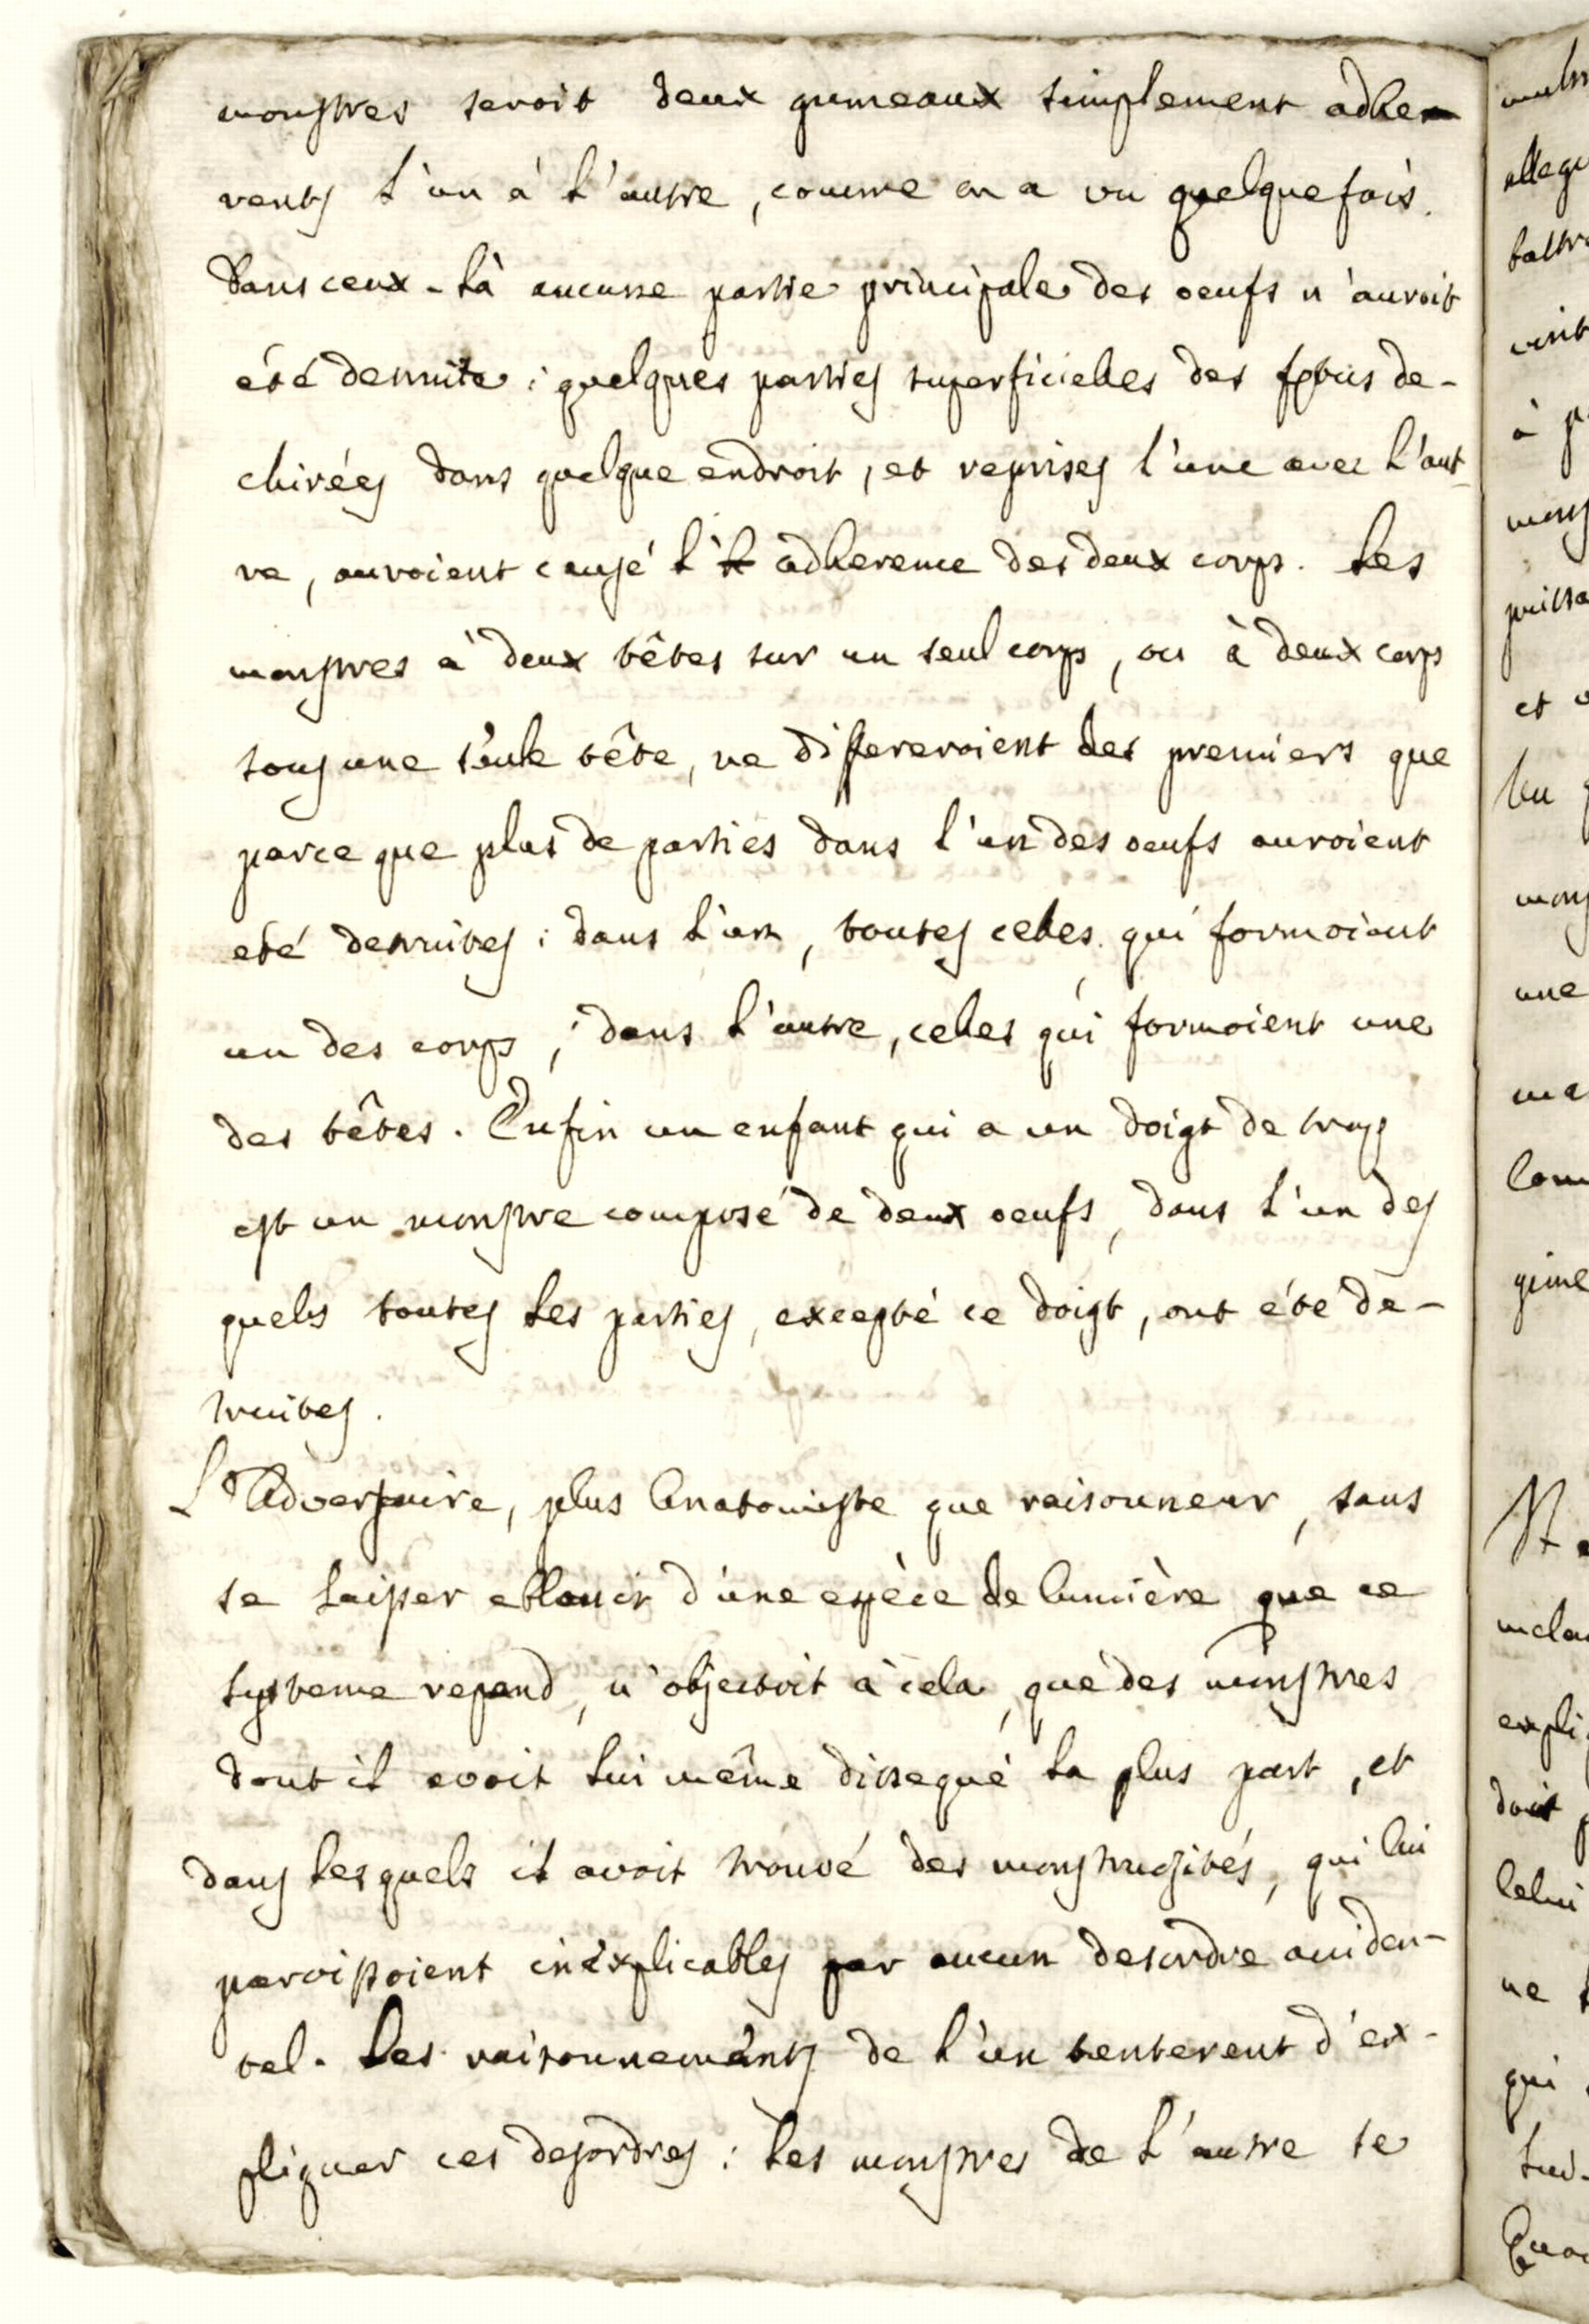 monstres seroit deux gumeaux simplement adhe-
rents l'un à l'autre, comme on a vu quelquefois.
Dans ceux-là aucune partie principale des oeufs n'auroit
été detruite : quelques parties superficieles des fœtus de-
chirées dans quelque endroit, et reprises l'une avec l'aut-
re, auroient causé l' adherence des deux corps. Les
monstres à deux têtes sur un seul corps, ou à deux corps
sous une seule tête, ne differeroient des premiers que
parce que plus de parties dans l'un des oeufs auroient
eté detruites : dans l'un, toutes celes qui formoient
un des corps ; dans l'autre, celes qui formoient une
des têtes. Enfin un enfant qui a un doigt de trop
est un monstre composé de deux oeufs, dans l'un des
quels toutes les parties, excepté ce doigt, ont été de-
truites.
L'Adversaire, plus Anatomiste que raisonneur, sans
se laisser eblouir d'une espèce de lumière que ce
systeme repand, n'objectoit à cela, que des monstres
dont il avoit lui même dissequé la plus part, et
dans lesquels il avoit trouvé des monstruosités, qui lui
paroissoient inéxplicables par aucun desordre acciden-
tel. Les raisonnements de l'un tenterent d'ex-
pliquer ces desordres : les monstres de l'autre se